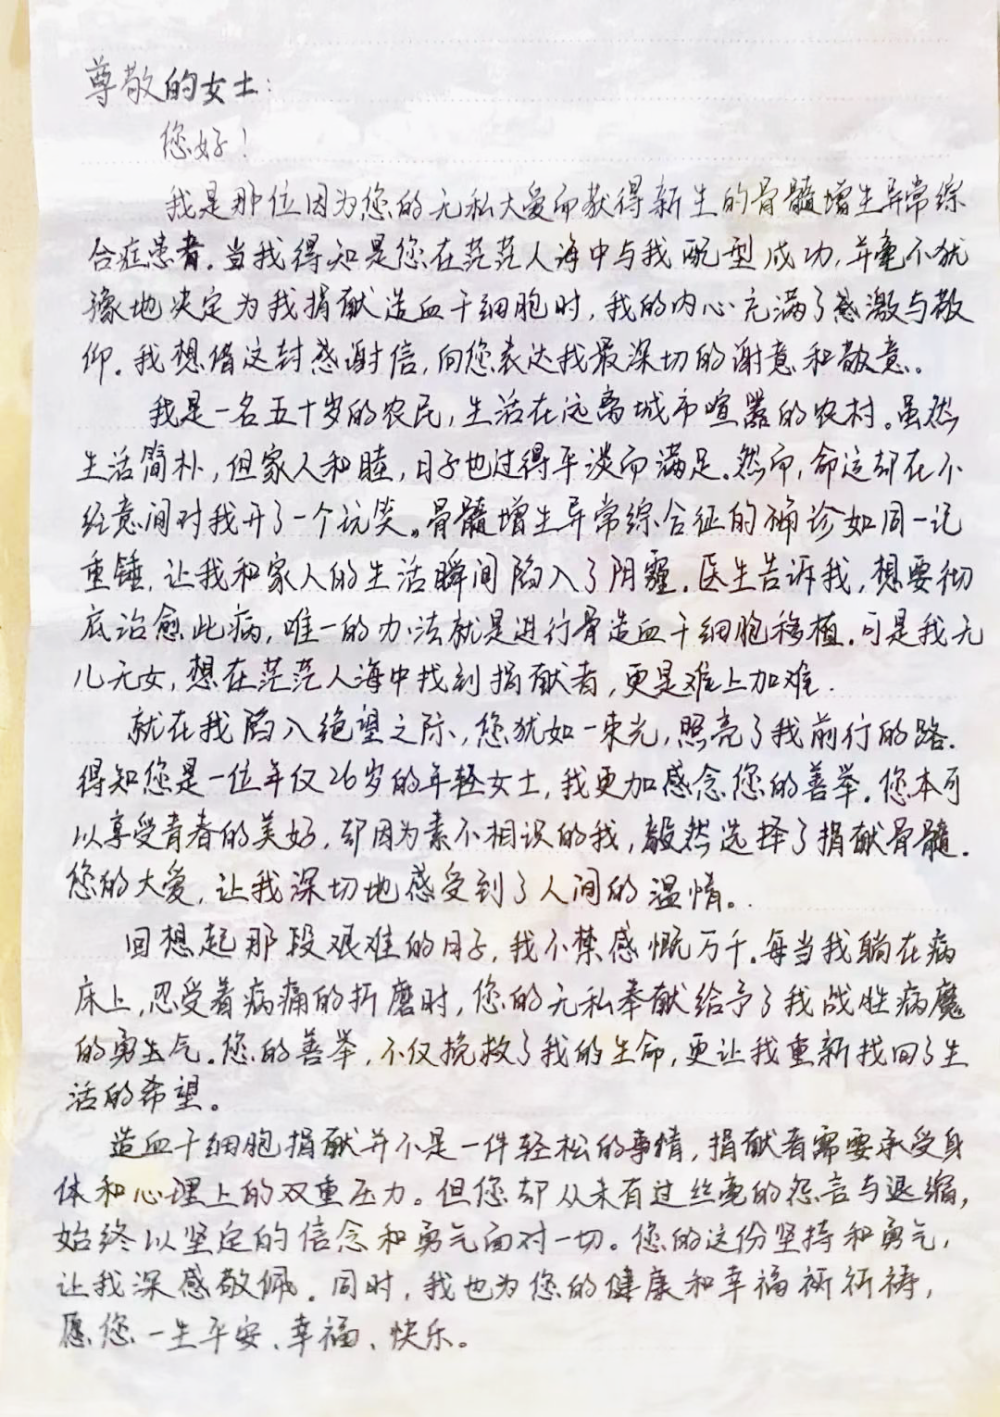 尊敬的女士：
您好！
我是那位因为您的无私大爱而获得新生的骨髓增生异常综
合症患者。当我得知是您在茫茫人海中与我配型成功，并毫不犹
豫地决定为我捐献造血干细胞时，我的内心充满了感激与敬
仰。我想借这封感谢信，向您表达我最深切的谢意和敬意。
我是一名五十岁的农民，生活在远离城市喧嚣的农村。虽然
生活简朴，但家人和睦，日子也过得平淡而满足。然而，命运却在不
经意间对我开了一个玩笑。骨髓增生异常综合征的确诊如同一记
重锤，让我和家人的生活瞬间陷入了阴霾。医生告诉我，想要彻
底治愈此病，唯一的办法就是进行骨造血干细胞移植。可是我无
儿无女，想在茫茫人海中找到捐献者，更是难上加难．
就在我陷入绝望之际，您犹如一束光，照亮了我前行的路．
得知您是一位年仅26岁的年轻女士，我更加感念您的善举。您本可
以享受青春的美好，却因为素不相识的我，毅然选择了捐献骨髓．
您的大爱，让我深切地感受到了人间的温情。
回想起那段艰难的日子，我不禁感慨万千。每当我躺在病
床上，忍受着病痛的折磨时，您的无私奉献给予了我战胜病魔
的勇气。您的善举，不仅挽救了我的生命，更让我重新找回了生
活的希望。
造血干细胞捐献并不是一件轻松的事情，捐献者需要承受身
体和心理上的双重压力。但您却从未有过丝毫的怨言与退缩，
始终以坚定的信念和勇气面对一切。您的这份坚持和勇气，
让我深感敬佩。同时，我也为您的健康和幸福祈祷，
愿您一生平安、幸福、快乐。